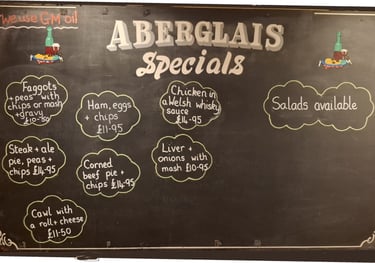 we use GM oil
ABERGLAIS
Specials
Faggots
+ peas with
chips or mash
+ gravy
£10-50
Ham, eggs
+ chips
£11-95
Chicken in
a Welsh whisky
sauce
£14-95
Salads available
Steak + ale
pie, peas +
chips £14-95
Corned
beef pie +
chips £14-95
Liver +
onions with
mash £10-95
Cawl with
a roll + cheese
£11-50